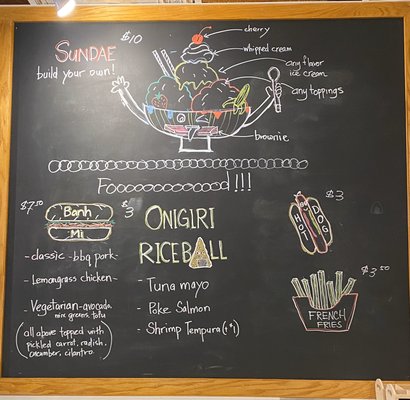 SUNDAE
build your own!
$10
cherry
whipped cream
any flavor
ice cream
any toppings
brownie
Foooooooooood!!!
$7.50
Banh
Mi
- classic - bbq pork -
- Lemongrass chicken -
- Vegetarian - avocado
mix greens, tofu
(all above topped with
pickled carrot, radish,
cucumber, cilantro.)
$3
ONIGIRI
RICEBALL
- Tuna mayo
- Poke Salmon
- Shrimp Tempura (+$1)
$3
HOT
DOG
$3.50
FRENCH
FRIES